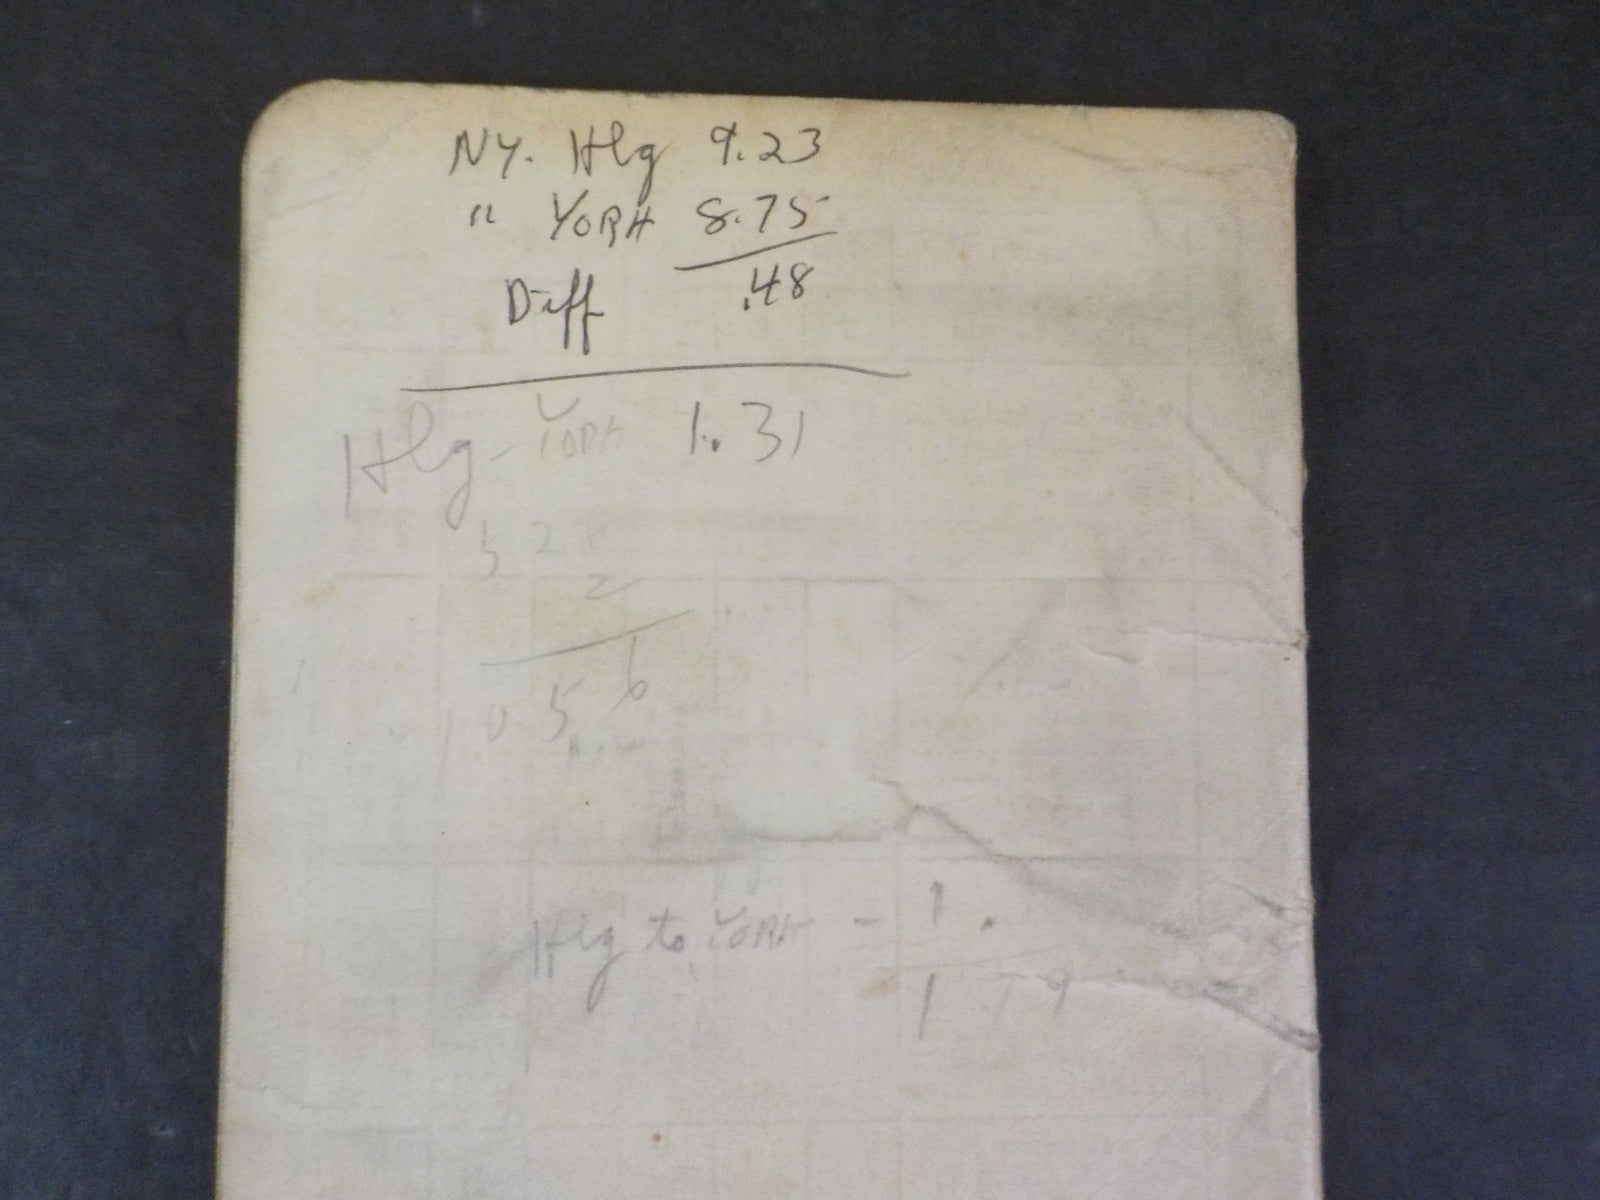 NY. Hbg 9.23
" YORK 8.75
Diff .48
Hbg - YORK 1.31
528
2
1056
Hbg to YORK - 1.